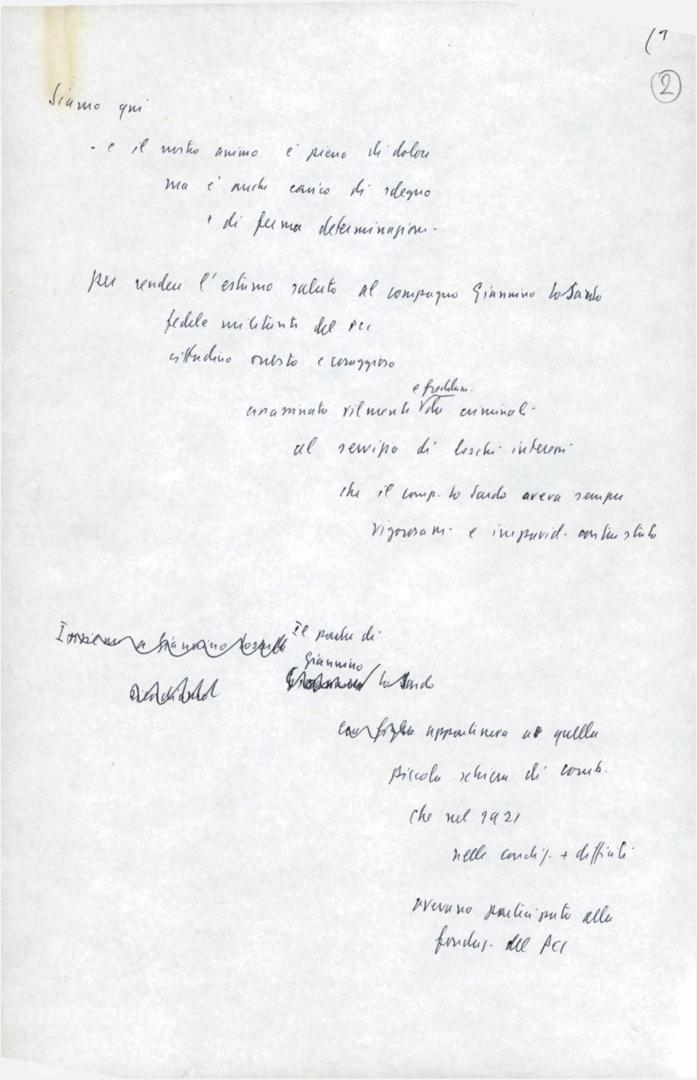 (1
2
Siamo qui
- e il nostro animo è pieno di dolore
ma è anche carico di sdegno
e di ferma determinazione -
per rendere l'estremo saluto al compagno Giannino Lo Sardo
fedele militante del PCI
cittadino onesto e coraggioso
e freddam.
assassinato vilmente da criminali
al servizio di loschi interessi
che il comp. Lo Sardo aveva sempre
vigorosam. e impavid. contrastato
Insieme a Giannino Losardo Il padre di
Giannino
Lo Sardo
con figlio apparteneva a quella
piccola schiera di comb.
che nel 1921
nelle condiz. + difficili
avevano partecipato alla
fondaz. del PCI